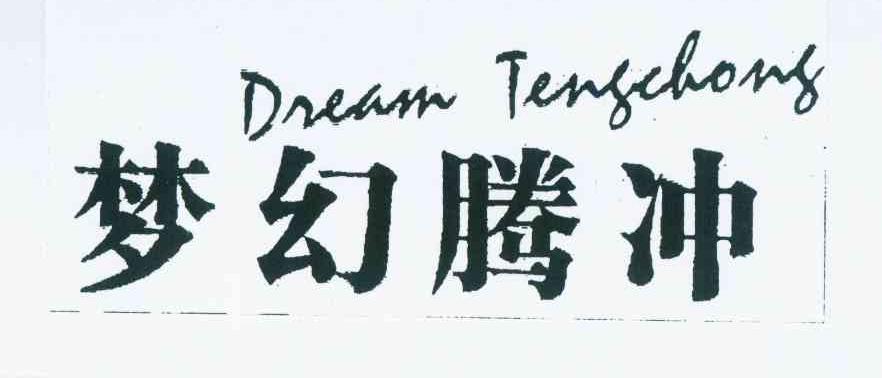 Dream Tengchong
梦幻腾冲